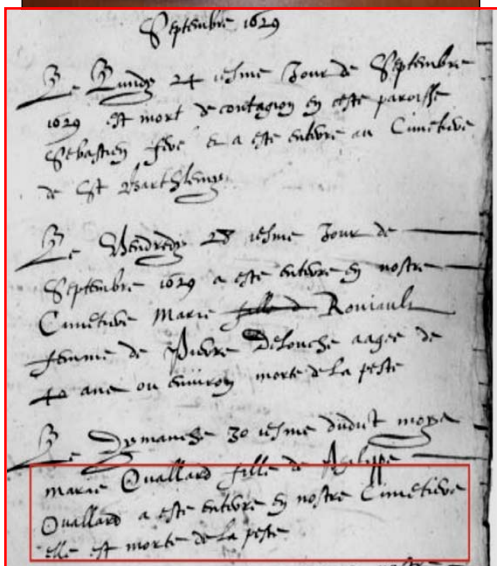 Septembre 1629
Le Lundy 24 iesme Jour de Septembre
1629 est mort de contagion en ceste paroisse
Sebastien feve & a este enterre au Cimetiere
de St Barthlemy
Le Vendredy 28 iesme Jour de
Septembre 1629 a este enterre en nostre
Cimetiere Marie fille d Roniault
femme de Pierre Delouche aagee de
40 ans ou environ morte de la peste
Le Dymanche 30 iesme dudict moys
marie Ouallard fille de Phelippe
Ouallard a este enterre en nostre Cimetiere
elle est morte de la peste